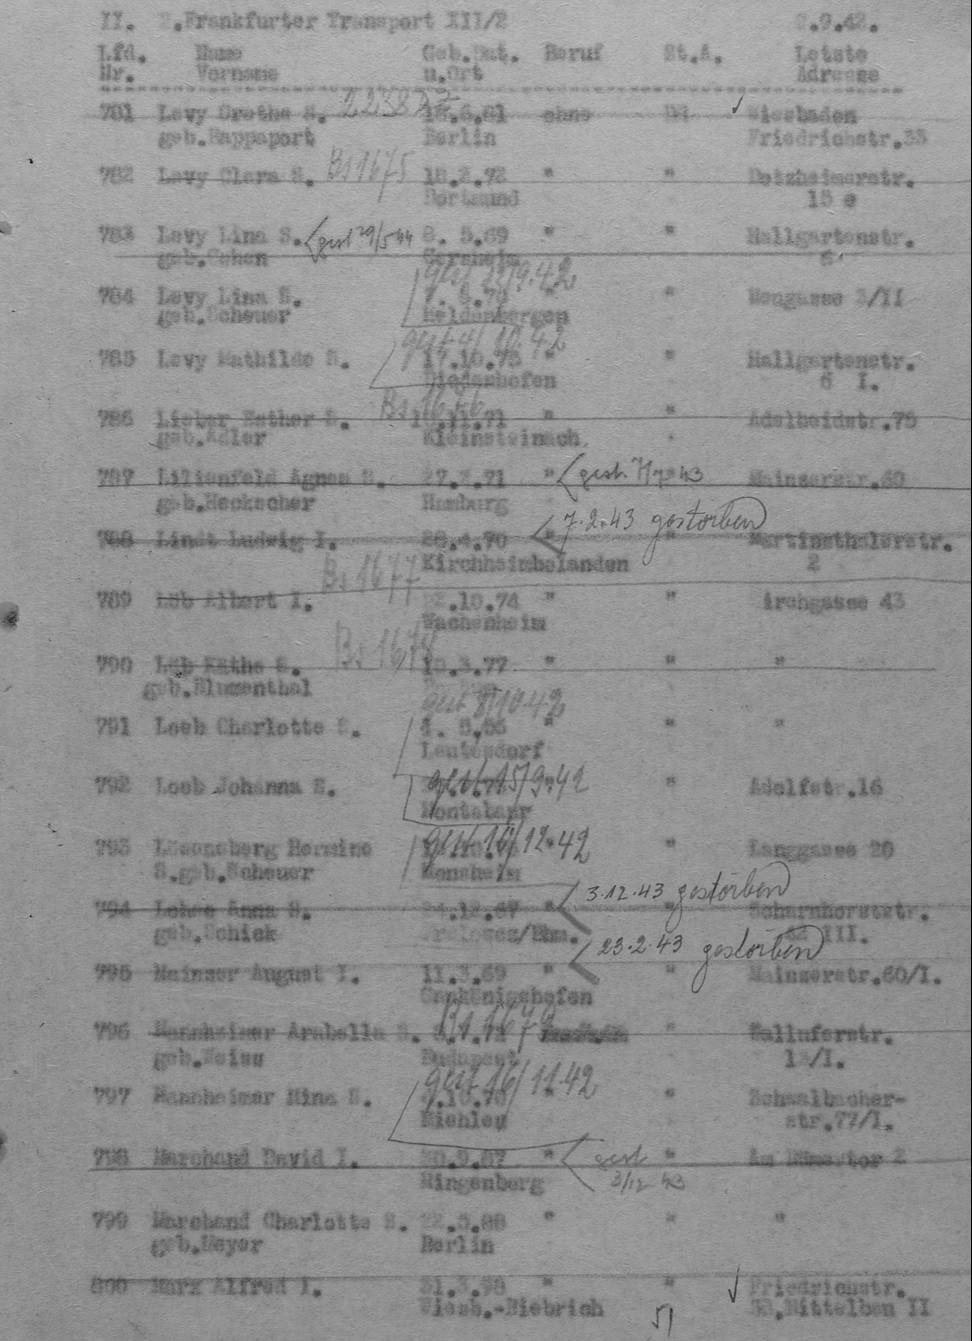 II. 2.Frankfurter Transport XII/2 2.9.42.
Lfd. Name Geb.Dat. Beruf St.A. Letzte
Nr. Vorname u.Ort Adresse
781 Levy Grethe S. 18.6.81 ohne DR Wiesbaden
geb.Rappaport Berlin Friedrichstr.33
782 Levy Clara S. Bs 1675 18.2.72 " " Dotzheimerstr.
Dortmund 15 e
783 Levy Lina S. gest 29/5 44 8. 5.69 " " Hallgartenstr.
geb.Cohen Gernsheim 6
gest 9.42
784 Levy Lina S. " " Wengasse 3/II
geb.Scheuer Heldenbergen
gest 4/10.42
785 Levy Mathilde S. 17.10.75 " Hallgartenstr.
6 I.
786 Lieber Esther S. 11.71 " " Adelheidstr.75
geb.Adler Kleinsteinach
787 Lilienfeld Agnes S. 27.2.71 " gest. 43 Mainzerstr.60
geb.Heckscher Hamburg
7.2.43 gestorben
788 Lindt Ludwig I. 28.4.70 " " Martinsthalerstr.
Kirchheimbolanden 2
Bs 1677
789 Löb Albert I. .10.74 " " irchgasse 43
Wachenheim
Bs 1678
790 Löb Käthe S. 10.3.77 " " "
geb.Blumenthal
gest 8/10 42
791 Loeb Charlotte S. " " "
Leutesdorf
792 Loeb Johanna S. gest 15/9.42 " Adolfstr.16
Montabaur
793 Lösensberg Hermine gest 16/12.42 " Langgasse 20
S.geb.Scheuer Monsheim
3.12.43 gestorben
794 Anna S. 24.12.67 " " Scharnhorststr.
geb.Schick /Bhm. III.
23.2.43 gestorben
795 Mainzer August I. 11.3.69 " " Mainzerstr.60/I.
Gaukönigshofen
796 Mannheimer Arabella S. " Walluferstr.
geb.Weiss Budapest 13/I.
gest 16/11.42
797 Mannheimer Mina S. .10.70 " " Schwalbacher-
Miehlen str.77/I.
798 Marchand David I. 20.9.67 " gest " Am Römertor 2
Ringenberg 3/12 43
799 Marchand Charlotte S. 22.5.88 " " "
geb.Meyer Berlin
800 Marx Alfred I. 31.3.98 " " Friedrichstr.
Wiesb.-Biebrich 33,Mittelbau II